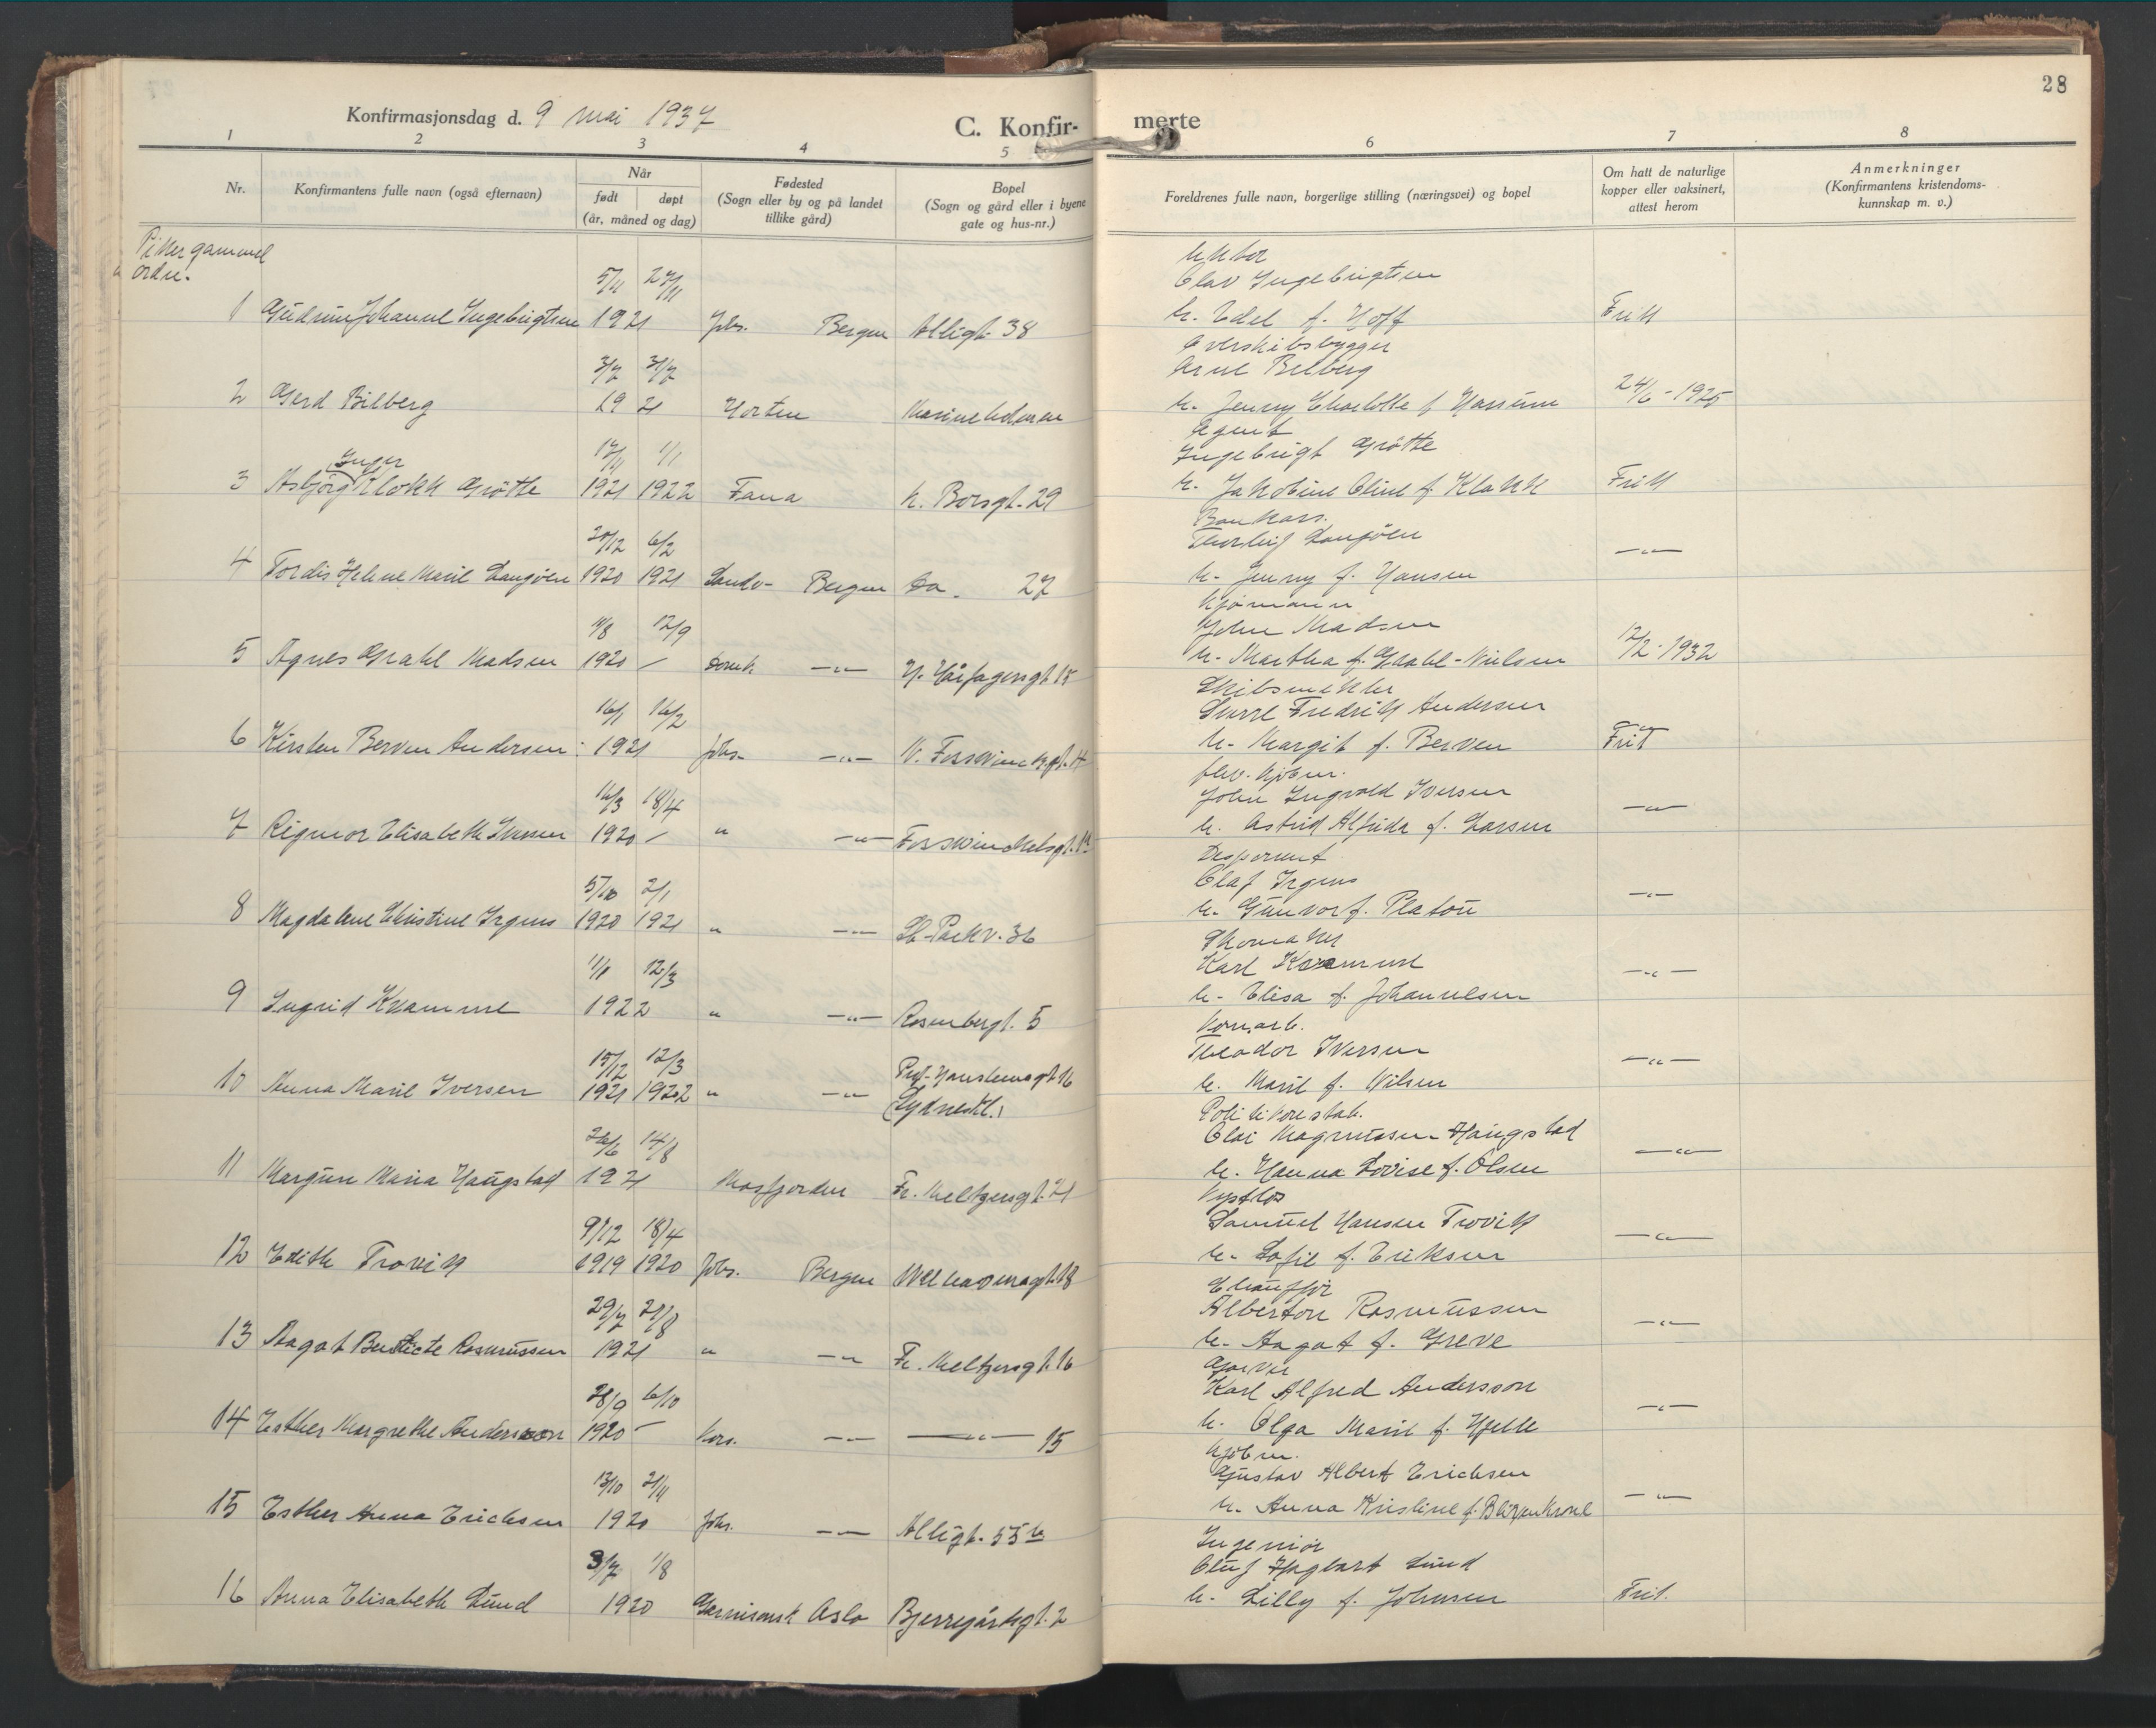 28
Konfirmasjonsdag d. 9 mai 1937
C. Konfir-
merte
1 2 3 4 5 6 7 8
Nr.
Konfirmantens fulle navn (også efternavn)
Når
født døpt
(år, måned og dag)
Fødested
(Sogn eller by og på landet
tillike gård)
Bopel
(Sogn og gård eller i byene
gate og hus-nr.)
Foreldrenes fulle navn, borgerlige stilling (næringsvei) og bopel
Om hatt de naturlige
kopper eller vaksinert,
attest herom
Anmerkninger
(Konfirmantens kristendoms-
kunnskap m. v.)
Piker gammel
ordn.
5/11 27/11
1 Gudrun Johanne Ingebrigtsen 1921 Johs. Bergen Alligt. 38
Olav Ingebrigtsen
h. Edel f. Hoff Frik
3/7 31/7
2 Gerd Bilberg 1921 Horten Marineholmen
Arne Bilberg
h. Jenny Charlotte f. Hansen 24/6 - 1925
17/11 1/1
Inger
3 Asbjørg Klokk Grøtte 1921 1922 Fana h. Borsgt. 29
Agent
Ingebrigt Grøtte
h. Jakobine Oline f. Klokk Frik
20/12 6/2
4 Tordis Helene Marie Langøen 1920 1921 Sandv- Bergen Do. 27
Bankass.
Thorleif Langøen
h. Jenny f. Hansen -"-
11/8 12/9
5 Agnes Grahl Madsen 1920 - Domk -"- H. Hårfagersgt. 15
Sjømann
John Madsen
h. Martha f. Grahl-Nielsen 12/2 - 1932
16/1 16/2
6 Kirsten Berven Andersen 1921 Johs. -"- V. Fosswinckelsgt. 14
Skibsmekler
Sverre Fredrik Andersen
h. Margit f. Berven Frit
16/3 18/4
7 Rigmor Elisabeth Iversen 1920 - " -"- Fosswinckelsgt.
John Ingvald Iversen
h. Astrid Alfrida f. Larsen -"-
5/10 2/1
8 Magdalene Christine Irgens 1920 1921 " -"- St. Parkv. 36
Disponent
Olaf Irgens
h. Gunvor f. Platou -"-
1/1 12/3
9 Ingrid Kvamme 1922 " -"- Rosenbergt. 5
Skomaker
Karl Kvamme
h. Elisa f. Johannesen -"-
15/12 12/3
10 Anna Marie Iversen 1921 1922 " -"- Prof. Hansteensgt. 16
(Sydneskl.)
Theodor Iversen
h. Marie f. Nilsen -"-
26/6 14/8
11 Margun Maria Haugstad 1921 Masfjorden Fr. Meltzersgt. 21
Politikonstab.
Olai Magnussen Haugstad
h. Hanna Lovise f. Olsen -"-
9/12 18/4
12 Edith Trovik 1919 1920 Johs. Bergen Welhavensgt. 18
Samuel Hansen Trovik
h. Sofie f. Eriksen -"-
29/7 21/8
13 Aagot Benedicte Rasmussen 1921 " -"- Fr. Meltzersgt. 16
Chauffør
Alberton Rasmussen
h. Aagot f. Greve -"-
21/9 6/10
14 Esther Margrethe Andersson 1920 - Kors. -"- -"- 15
Garver
Karl Alfred Andersson
h. Olga Marie f. Hjelle -"-
13/10 21/11
15 Esther Anna Erichsen 1920 Johs. -"- Alligt. 55 b
Kjøbm.
Gustav Albert Erichsen
h. Anna Kristine f. Blixenkrone -"-
3/7 1/8
16 Anna Elisabeth Lund 1920 Garnisonsk Oslo Bjerregårdsgt. 2
Ingeniør
Oluf Hagbart Lund
h. Lilly f. Johnsen Frit.